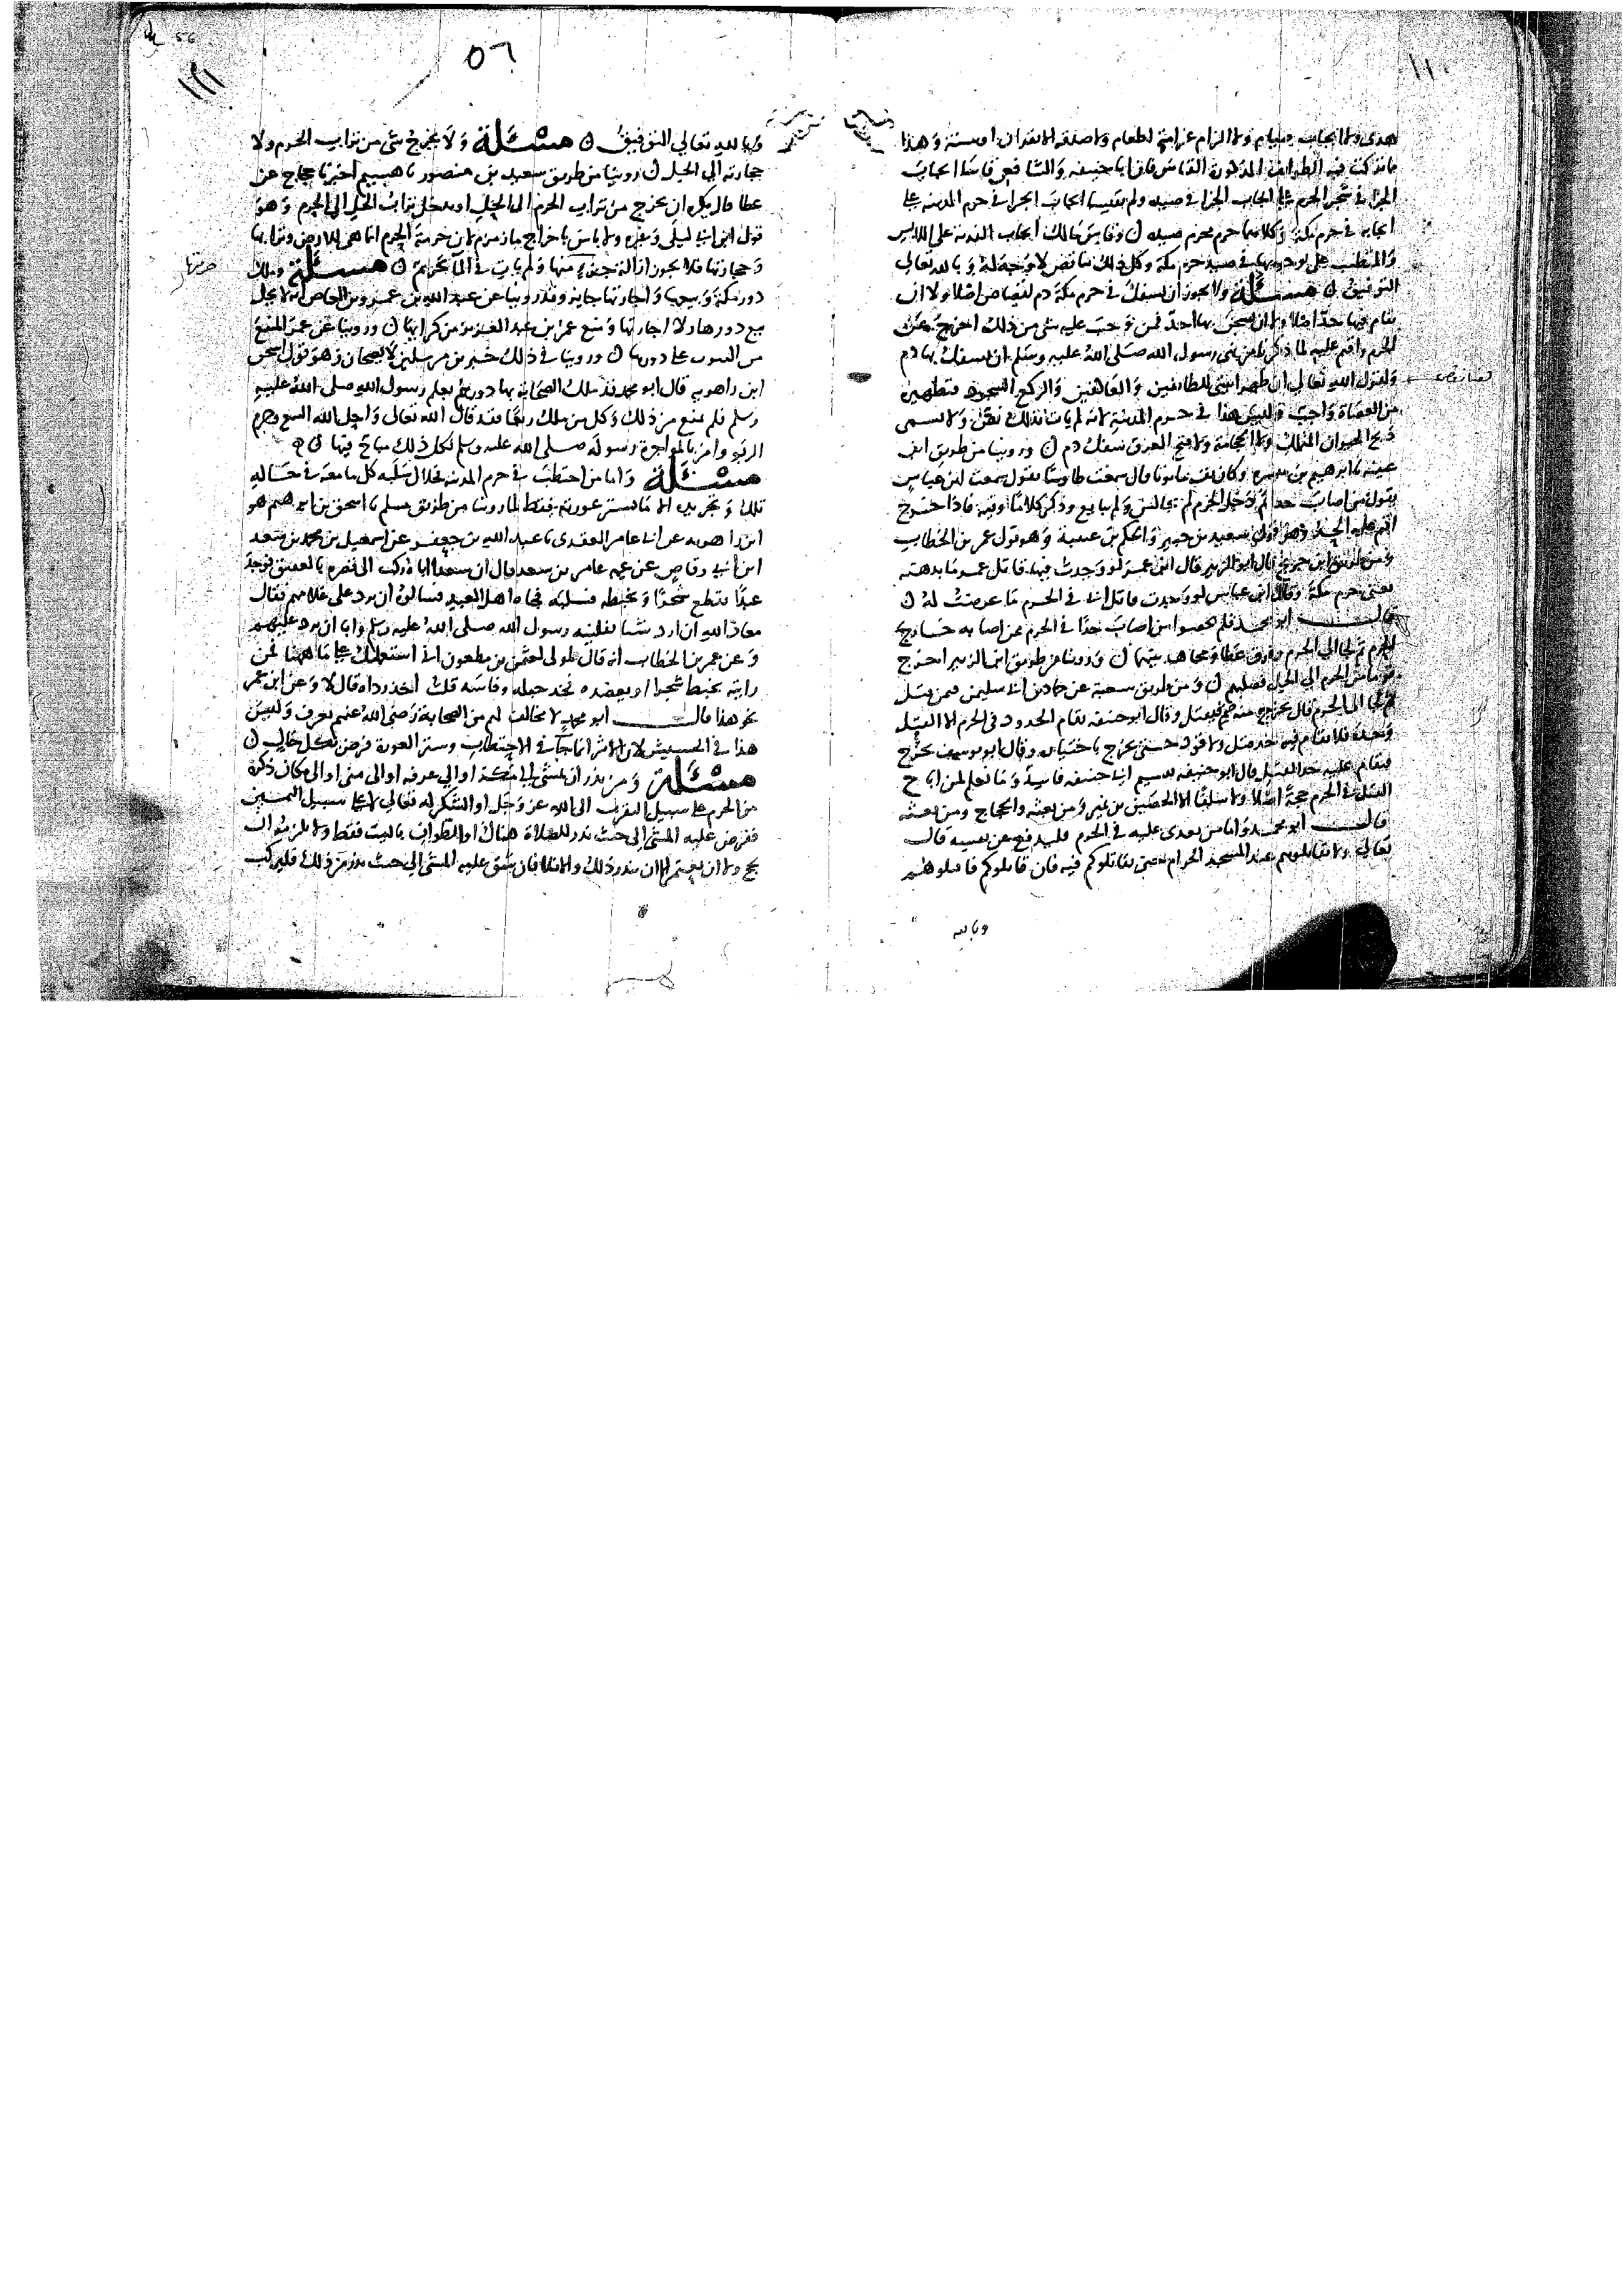 ١١٠
هدى ولا ايجاب صيام ولا الزام غرامة اطعام ولا صدقة الا بقران او سنة وهذا
مما تركت فيه الطوايف المذكورة القياس فان ابا حنيفة والشافعي قاسا ايجاب
الجزا في شجر الحرم على ايجاب الجزا في صيده ولم يقيسا ايجاب الجزا في حرم المدينة على
ايجابه في حرم مكة وكلاهما حرم محرم صيده وقاس مالك ايجاب الفدية على اللابس
والمتطيب على وجوبها في صيد حرم مكة وكل ذلك تناقض لا وجه له وبالله تعالى
التوفيق مسئلة ولا يجوز ان يسفك في حرم مكة دم لقصاص اصلا ولا ان
يقام فيها حد اصلا ولا ان يسجن بها احد فمن وجب عليه شى من ذلك اخرج عن
الحرم واقيم عليه لما ذكرنا من نهى رسول الله صلى الله عليه وسلم ان يسفك بها دم
ولقول الله تعالى ان طهرا بيتى للطائفين والعاكفين والركع السجود فتطهيره
من العصاة واجب وليس هذا في حرم المدينة لانه لم يات بذلك نص ولا يسمى
ذبح الحيوان المتملك ولا الحجامة ولا فتح العرق سفك دم وروينا من طريق ابن
عيينة نا ابرهيم بن ميسرة وكان ثقة مامونا قال سمعت طاوسا يقول سمعت ابن عباس
يقول من اصاب حدا ثم دخل الحرم لم يجالس ولم يبايع وذكر كلاما وفيه فاذا خرج
اقيم عليه الحد وهو قول سعيد بن جبير والحكم بن عتيبة وهو قول عمر بن الخطاب
ومن طريق ابن جريج قال ابو الزبير قال ابن عمر لو وجدت فيها قاتل عمر ما بدهته
يعنى حرم مكة وقال ابن عباس لو وجدت قاتل ابى في الحرم ما عرضت له
قال ابو محمد فلم يخصوا من اصاب حدا في الحرم ممن اصابه خارج
الحرم ثم لجا الى الحرم وفرق عطا ومجاهد بينهما وروينا من طريق ابن الزبير اخرج
قوما من الحرم الى الحل فصلبهم ومن طريق شعبة عن حماد بن ابى سليمن فيمن قتل
ثم لجا الى الحرم قال يخرج منه فيقتل وقال ابو حنيفة تقام الحدود في الحرم الا القتل
وحده فلا يقام فيه حد قتل ولا قود حتى يخرج باختياره وقال ابو يوسف يخرج
فيقام عليه حد القتل قال ابو حنيفة تقسيم ابى حنيفة فاسد وما نعلم لمن اباح
القتل في الحرم حجة اصلا ولا سلفا الا الحصين بن نمير ومن بعثه والحجاج ومن بعثه
قال ابو محمد واما من تعدى عليه في الحرم فليدفع عن نفسه قال
تعالى ولا تقاتلوهم عند المسجد الحرام حتى يقاتلوكم فيه فان قاتلوكم فاقتلوهم
وبالله
٥٦
١١١
وبالله تعالى التوفيق مسئلة ولا يخرج شى من تراب الحرم ولا
حجارته الى الحل روينا من طريق سعيد بن منصور نا هشيم اخبرنا حجاج عن
عطا قال يكره ان يخرج من تراب الحرم الى الحل او يدخل تراب الحل الى الحرم وهو
قول ابن ابى ليلى وغيره ولا باس باخراج ما زمزم لان حرمة الحرم انما هى للارض وترابها
وحجارتها فلا يجوز ازالة حرمتها منها ولم يات في الما تحريم مسئلة وملك
حرمتها
دور مكة وبيعها واجارتها جايز وقد روينا عن عبد الله بن عمرو بن العاص انه لا يحل
بيع دورها ولا اجارتها ومنع عمر بن عبد العزيز من كرايها وروينا عن عمر المنع
من التبويب على دورها وروينا في ذلك خبرين مرسلين لا يصحان وهو قول اسحق
ابن راهويه قال ابو محمد قد ملك الصحابة بها دورهم بعلم رسول الله صلى الله عليه
وسلم فلم يمنع من ذلك وكل من ملك ربعا فقد قال الله تعالى واحل الله البيع وحرم
الربو وامر بالمواجرة رسوله صلى الله عليه وسلم فكل ذلك مباح فيها
مسئلة واما من احتطب في حرم المدينة فحلال سلبه كل ما معه في حاله
تلك وتجريده الا ما يستر عورته فقط لما روينا من طريق مسلم نا اسحق بن ابرهيم هو
ابن راهويه عن ابى عامر العقدى نا عبد الله بن جعفر عن اسمعيل بن محمد بن سعد
ابن ابى وقاص عن عمه عامر بن سعد قال ان سعدا اباه ركب الى قصره بالعقيق فوجد
عبدا يقطع شجرا ويخبطه فسلبه فجاه اهل العبد فسالوه ان يرد على غلامهم فقال
معاذ الله ان ارد شيا نفلنيه رسول الله صلى الله عليه وسلم وابا ان يرد عليهم
وعن عمر بن الخطاب انه قال لمولى لعثمن بن مظعون انى استعملتك على ما ههنا فمن
رايته يخبط شجرا او يعضده فخذ حبله وفاسه قلت اخذ رداه قال لا وعن ابن عمر
نحو هذا قال ابو محمد لا مخالف لهم من الصحابة رضى الله عنهم يعرف وليس
هذا في الحشيش لان الاثر انما جا في الاحتطاب وستر العورة فرض بكل حال
مسئلة ومن نذر ان يمشى الى مكة او الى عرفة او الى منى او الى مكان ذكره
من الحرم على سبيل التقرب الى الله عز وجل او الشكر له تعالى لا على سبيل اليمين
ففرض عليه المشى الى حيث نذر للصلاة هناك او الطواف بالبيت فقط ولا يلزمه ان
يحج ولا ان يعتمر الا ان ينذر ذلك والا فلا فان شق عليه المشى الى حيث نذر من ذلك فليركب